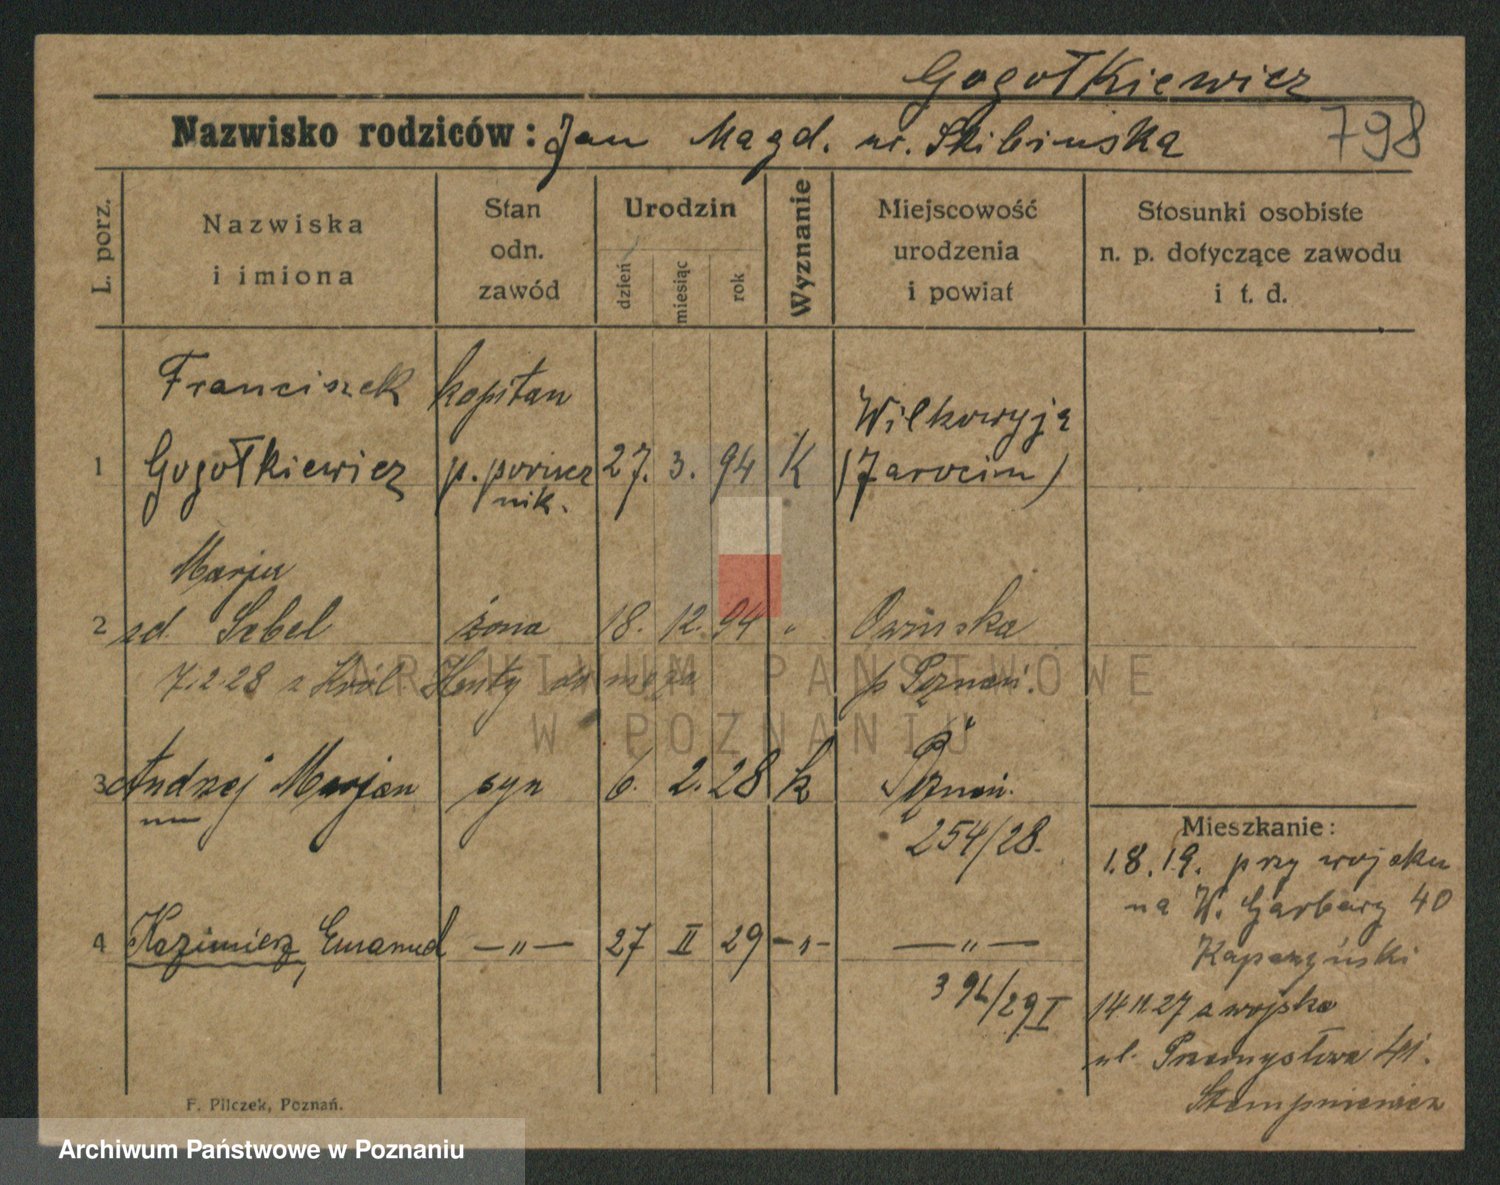 Gogołkiewicz
Nazwisko rodziców: Jan Magd. ur. Skibińska 798
L. porz.
Nazwiska i imiona
Stan odn. zawód
Urodzin
dzień miesiąc rok
Wyznanie
Miejscowość urodzenia i powiat
Stosunki osobiste n. p. dotyczące zawodu i t. d.
Franciszek kapitan Wilkowyja
1 Gogołkiewicz p. porucz 27. 3. 94 K (Jarocin)
nik.
Marja
2 zd. Szbel żona 18. 12. 94 " Owińska
7.2.28 z Król Huty do męża p Poznań.
3 Andrzej Marjan syn 6. 2. 28 k Poznań.
254/28.
4 Kazimierz, Emanuel —"— 27 II 29 —"— —"—
394/29 I
Mieszkanie:
1.8.19. przy wojsku
na W. Garbary 40
Kapczyński
14 11 27 z wojska
ul. Przemysłowa 41.
Stempniewicz
F. Pilczek, Poznań.
ARCHIWUM PAŃSTWOWE
W POZNANIU
Archiwum Państwowe w Poznaniu